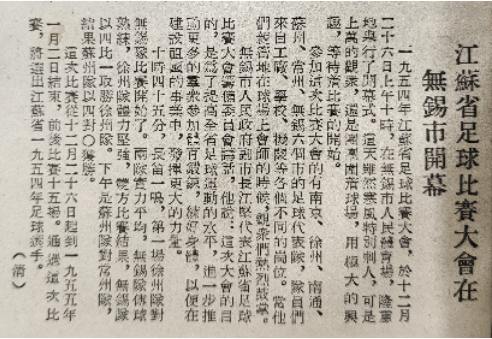 江蘇省足球比賽大會在
無錫市開幕
一九五四年江蘇省足球比賽大會，於十二月
二十六日上午十時，在無錫市人民體育場，隆重
地舉行了開幕式。這天雖然寒風特別刺人，可是
上萬的觀衆，還是團團圍着球場，用極大的興
趣，等待着比賽的開始。
參加這次比賽大會的有南京、徐州、南通、
蘇州、常州、無錫六個市的足球代表隊，隊員們
來自工廠、學校、機關等各個不同的崗位。當他
們整齊地在球場上會師的時候，觀衆們熱烈鼓掌。
無錫市人民政府副市長江堅代表江蘇省足球
比賽大會籌備委員會講話，他說：這次大會的目
的，是爲了提高全省足球運動的水平，進一步推
動更多的羣衆參加體育鍛鍊，練好身體，以便在
建設祖國的事業中，發揮更大的力量。
十時四十五分，長笛一鳴，第一場徐州隊對
無錫隊比賽開始了。兩隊實力平均，無錫隊傳球
熟練，徐州隊體力堅强，雙方比賽結果，無錫隊
以四比一取勝徐州隊。下午是蘇州隊對常州隊，
結果蘇州隊以四對〇獲勝。
這次比賽從十二月二十六日起到一九五五年
一月二日結束，前後比賽十五場。通過這次比
賽，將選出江蘇省一九五四年足球選手。
（清）